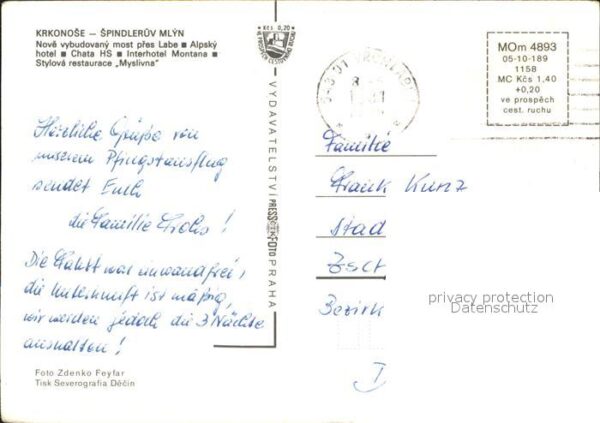 KRKONOŠE – ŠPINDLERŮV MLÝN
Nově vybudovaný most přes Labe ■ Alpský
hotel ■ Chata HS ■ Interhotel Montana ■
Stylová restaurace „Myslivna"
Kčs 0,20
VE PROSPĚCH CESTOVNÍHO RUCHU
MOm 4893
05-10-189
1158
MC Kčs 1,40
+0,20
ve prospěch
cest. ruchu
543 01 VRCHLABÍ
VYDAVATELSTVÍ PRESSFOTO PRAHA
Herzliche Grüße von
unserem Pfingstausflug
sendet Euch
die Familie !
Die Fahrt war einwandfrei,
die Unterkunft ist mäßig,
wir werden jedoch die 3 Nächte
aushalten!
Familie
Frank Kunz
Stad
Bezirk
privacy protection
Datenschutz
Foto Zdenko Feyfar
Tisk Severografia Děčín